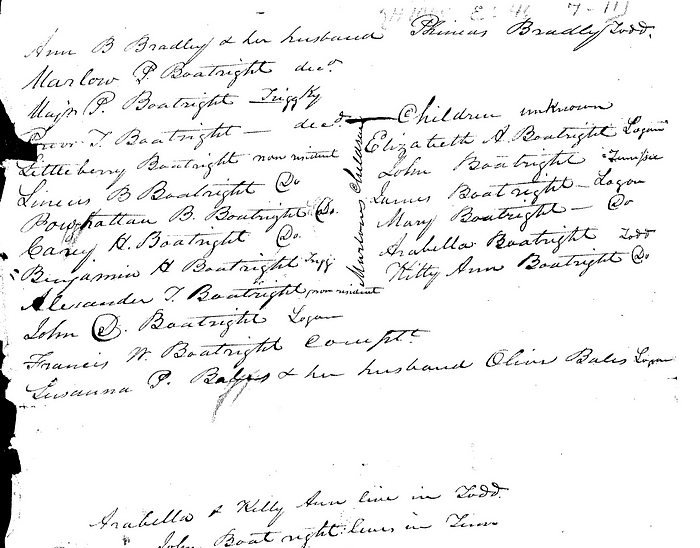 Ann B Bradley & her husband Phineas Bradley Todd.
Marlow P. Boatright decd.
Majr P. Boatright Trigg Ky
T. Boatright — decd. — Children unknown
Littleberry Boatright non resident
Lineus B Boatright Do
Powhattan B. Boatright Do.
Carey H. Boatright Do.
Benjamin H Boatright Trigg
Alexander T. Boatright non resident
John D. Boatright Logan
Francis W. Boatright Complt.
Susanna P. Bales & her husband Oliver Bales Logan
Marlows Children
Elizabeth A. Boatright Logan
John Boatright Tennessee
James Boatright — Logan
Mary Boatright — Do
Arabella Boatright Todd
Kitty Ann Boatright Do
Arabella & Kitty Ann live in Todd.
John Boatright lives in Tenn